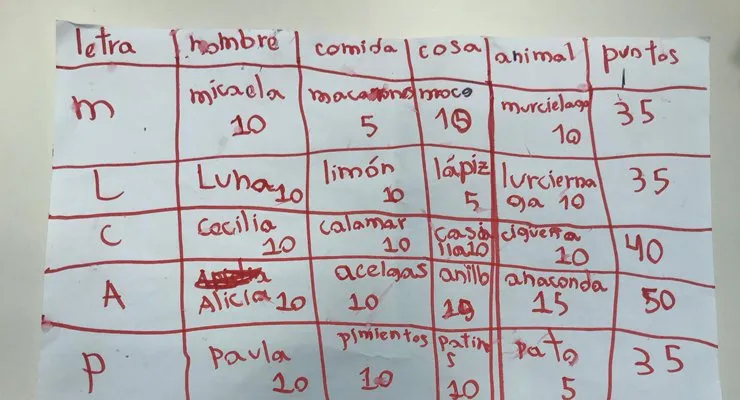 letra nombre comida cosa animal puntos
m micaela macarrones moco murcielago
10 5 10 35
L Luna 10 limón lápiz lurcierna 35
10 5 ga 10
C Cecilia calamar casi cigueña 40
10 10 lla 10 10
A Alicia 10 acelgas anillo anaconda 50
10 15
P Paula pimientos patin pato 35
s
10 10 10 5